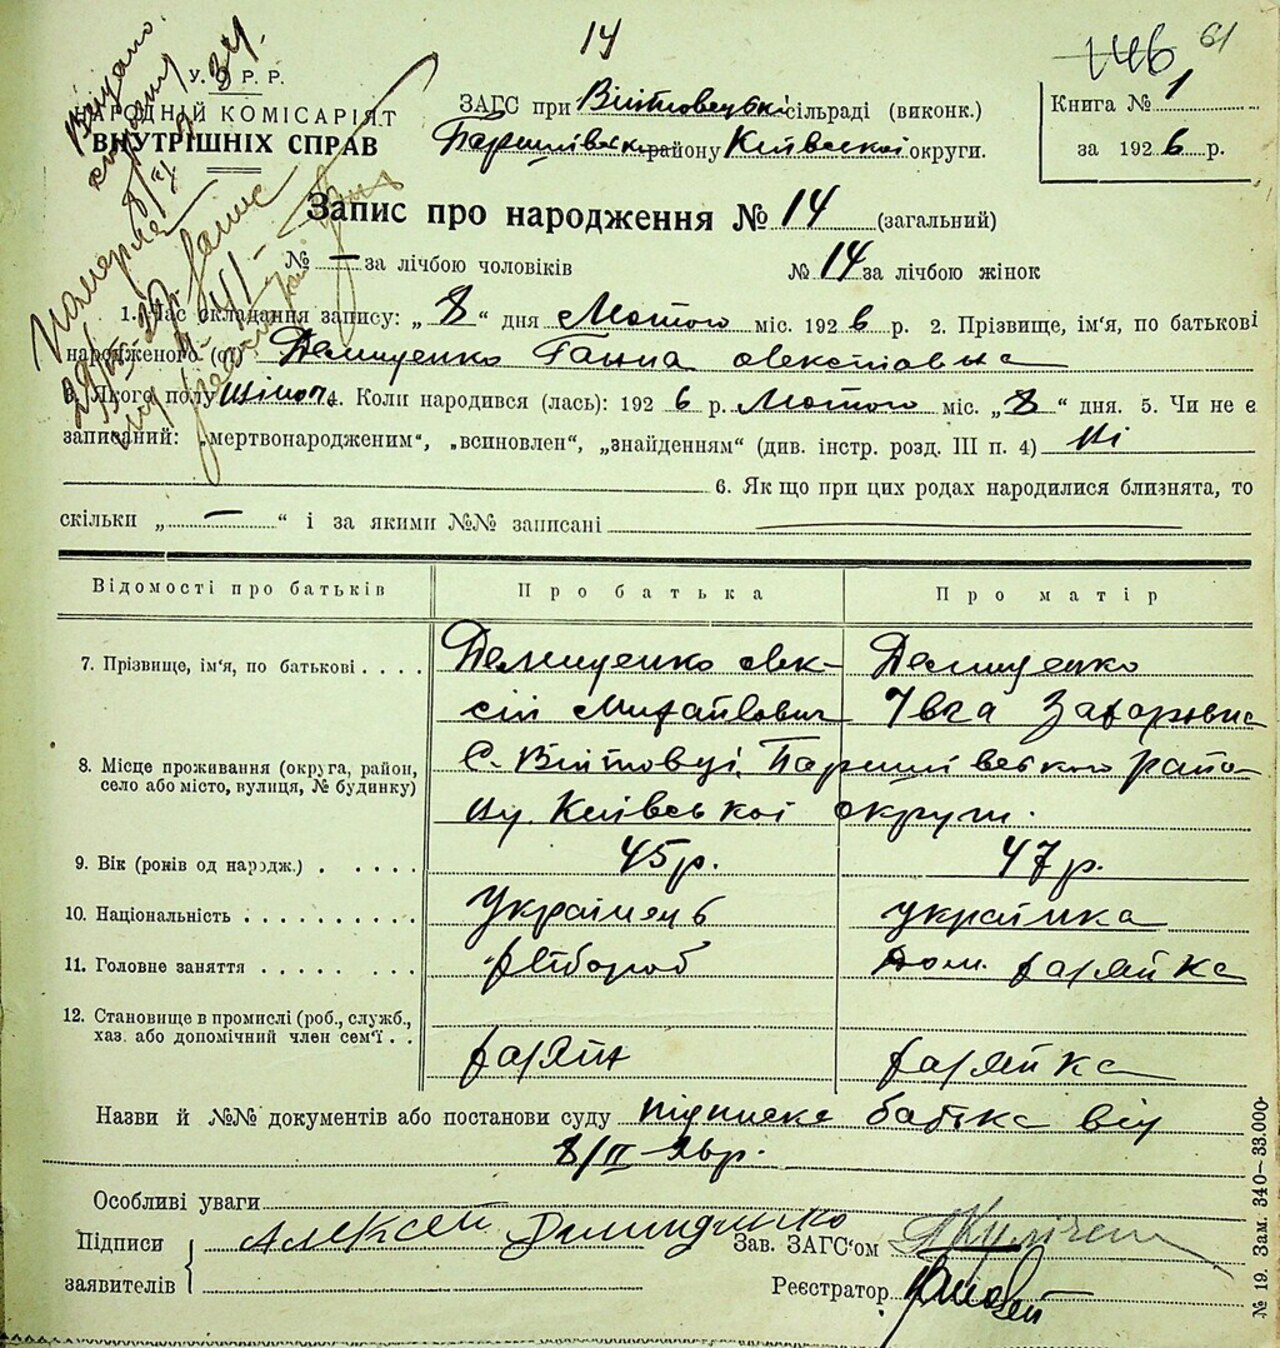 14
146
61
У. С. Р. Р.
НАРОДНІЙ КОМІСАРІЯТ
ВНУТРІШНІХ СПРАВ
ЗАГС при Війтовецькі сільраді (виконк.)
Баришівськ району Київської округи.
Книга № 1
за 1926 р.
Запис про народження № 14 (загальний)
№ — за лічбою чоловіків № 14 за лічбою жінок
1. Час складання запису: „ 8 “ дня Лютого міс. 1926 р. 2. Прізвище, ім'я, по батькові
народженого (ої) Демиденко Ганна Олексіївна
3. Якого полу жіноч. 4. Коли народився (лась): 1926 р. Лютого міс. „ 8 “ дня. 5. Чи не є
записаний: „мертвонародженим“, „всиновлен“, „знайденням“ (див. інстр. розд. III п. 4) Ні
6. Як що при цих родах народилися близнята, то
скільки „ — “ і за якими №№ записані
Відомості про батьків Про батька Про матір
7. Прізвище, ім'я, по батькові . . . . Демиденко Олек- Демиденко
сій Михайлович Івга Захаровна
8. Місце проживання (округа, район, С. Війтовці, Баришівського райо-
село або місто, вулиця, № будинку)
ну. Київської округи.
9. Вік (років од народж.) . . . . . 45 р. 47 р.
10. Національність . . . . . . . . . . Українець українка
11. Головне заняття . . . . . . . . хлібороб дом. хазяйка
12. Становище в промислі (роб., служб.,
хаз. або допомічний член сем'ї . .
хазяїн хазяйка
Назви й №№ документів або постанови суду підписка батька від
8/II–26 р.
Особливі уваги
Підписи Алексей Демиденко Зав. ЗАГС'ом
заявителів Реєстратор
№ 19. Зам. 340–33.000